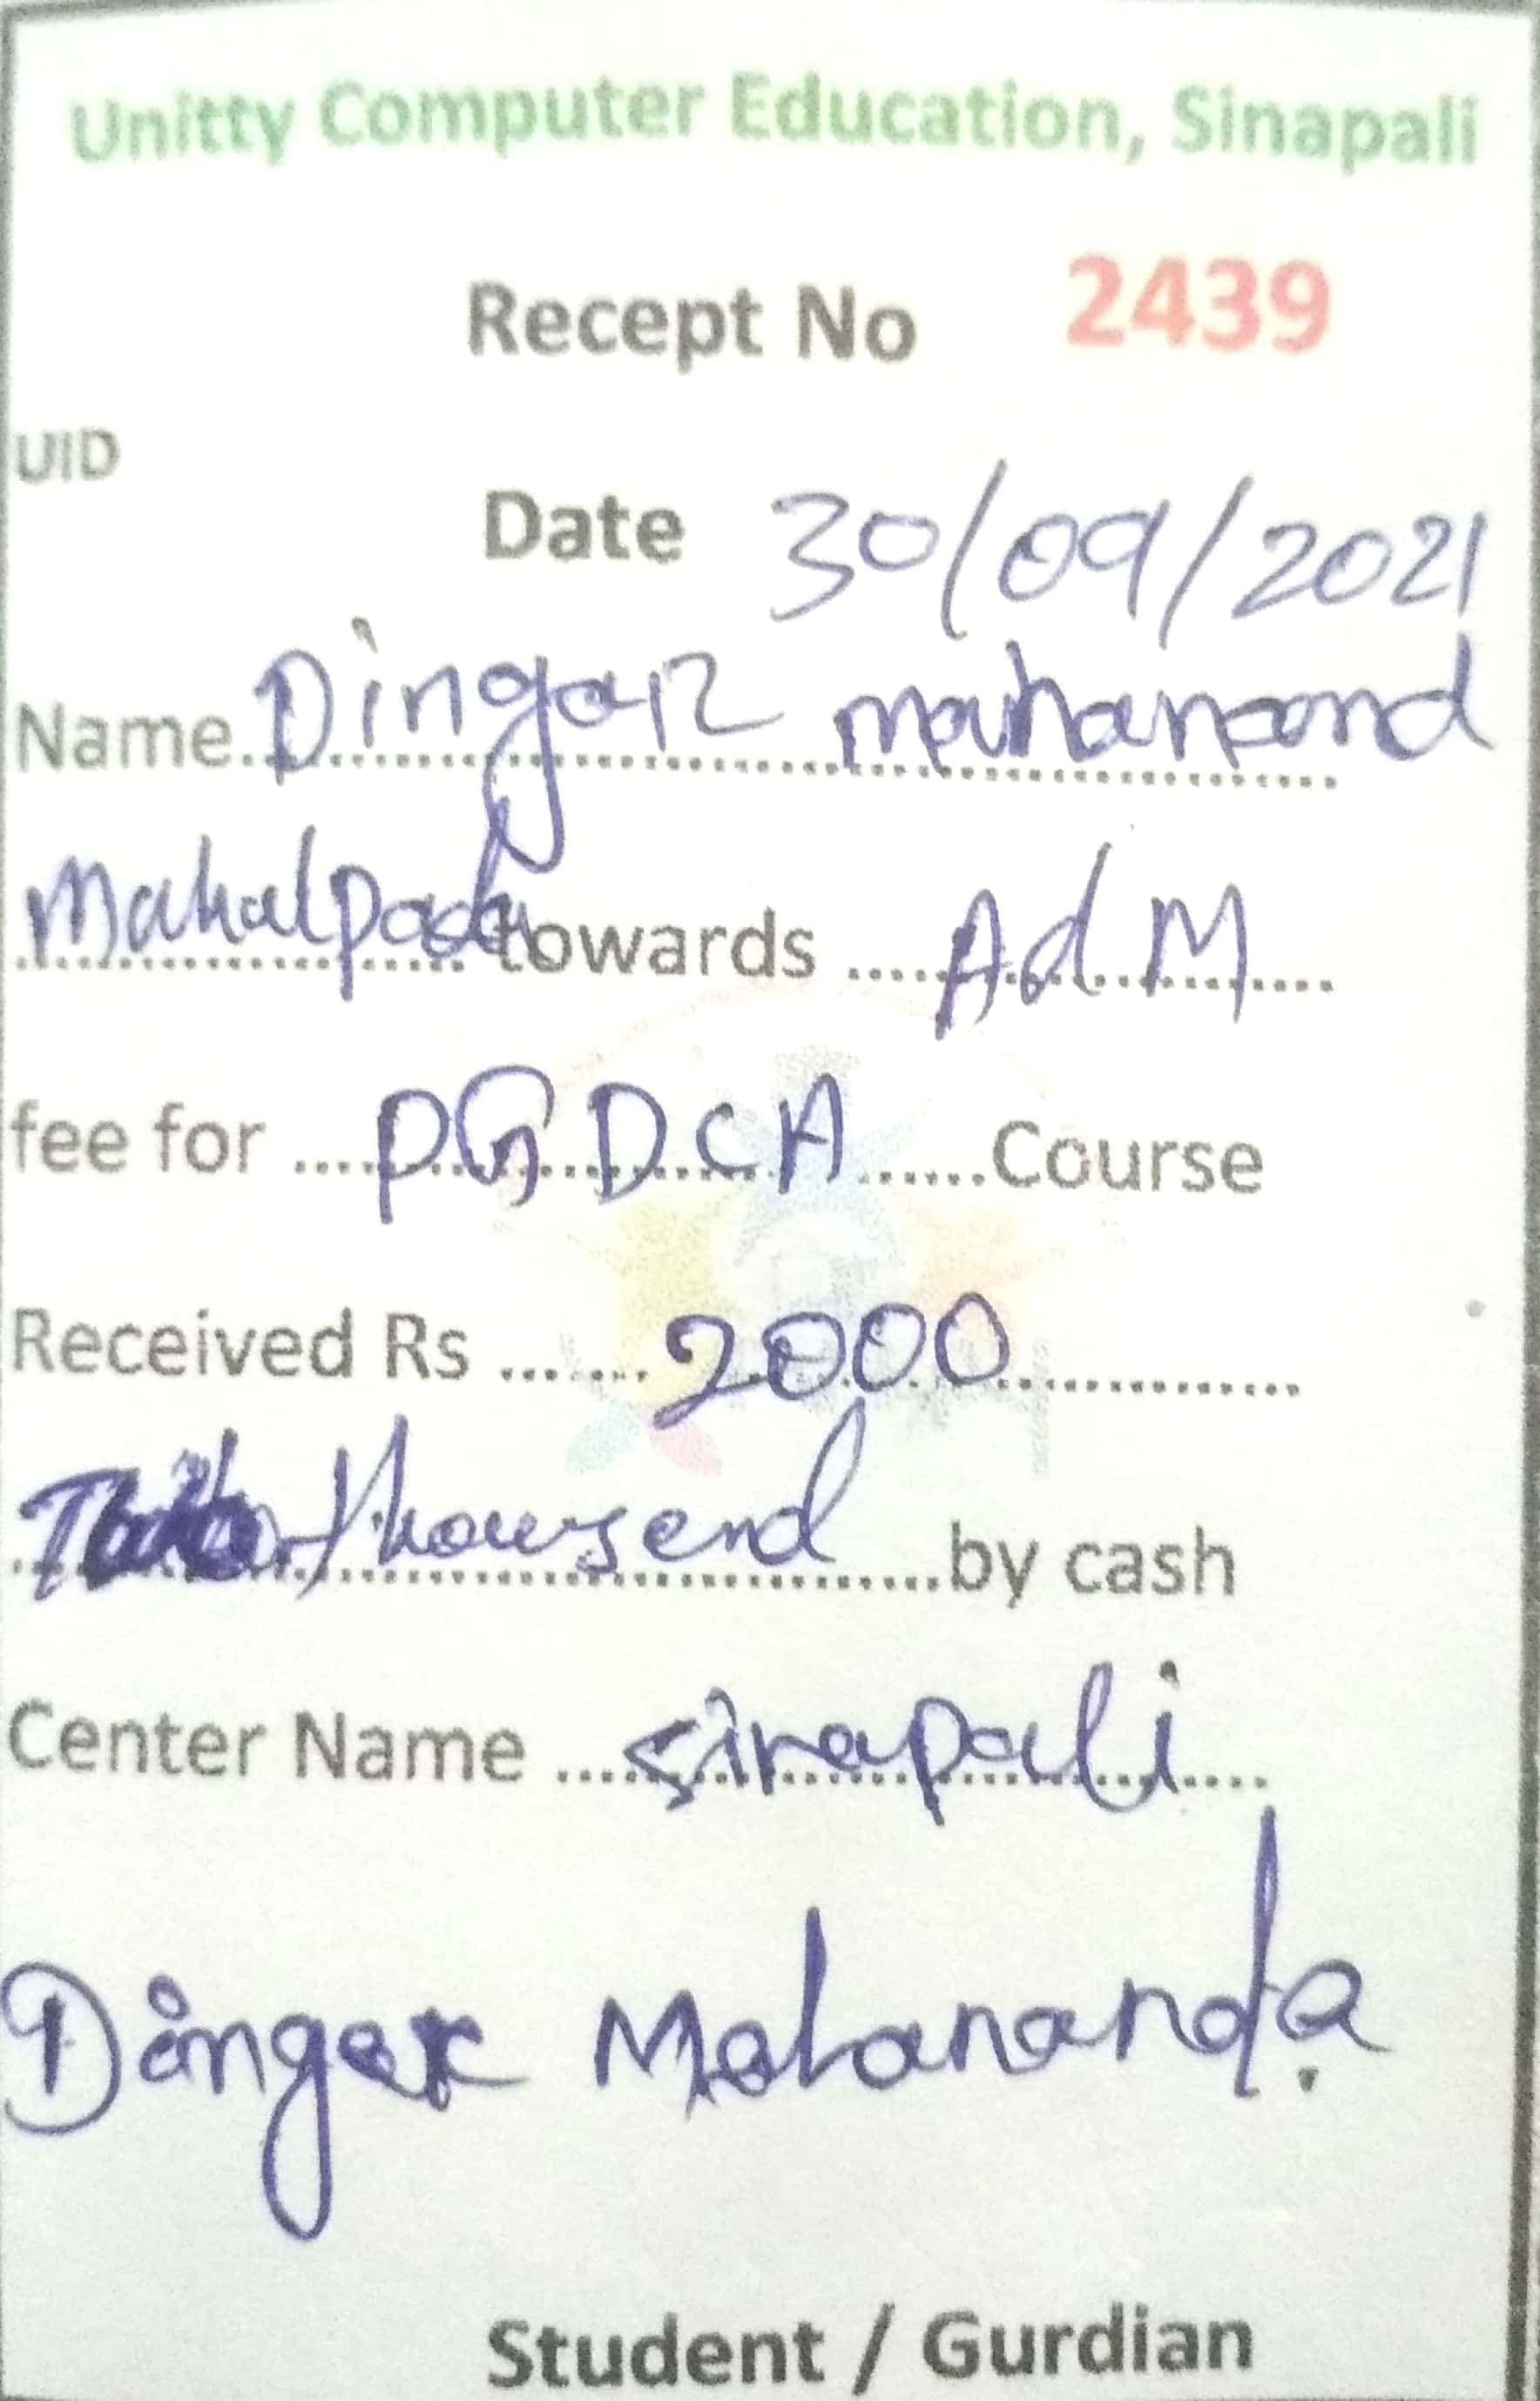 Unitty Computer Education, Sinapali
Recept No 2439
UID
Date 30/09/2021
Name Dingar mahanand
Mahalpada towards AdM
fee for PGDCA Course
Received Rs 2000
thousend by cash
Center Name sinapali
Dingar Mahananda
Student / Gurdian